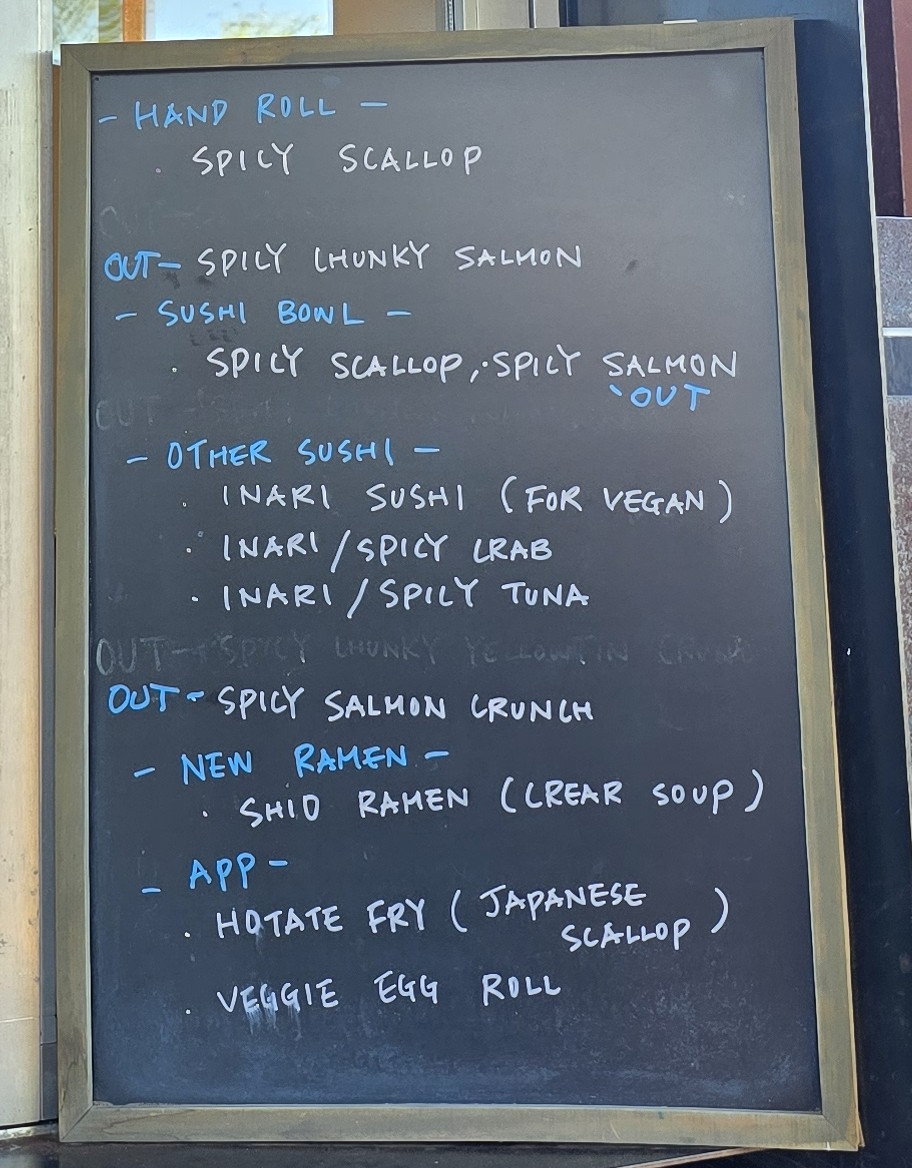 - HAND ROLL -
· SPICY SCALLOP
OUT- SPICY CHUNKY SALMON
- SUSHI BOWL -
· SPICY SCALLOP, · SPICY SALMON
OUT
- OTHER SUSHI -
· INARI SUSHI (FOR VEGAN)
· INARI / SPICY CRAB
· INARI / SPICY TUNA
OUT - SPICY CHUNKY YELLOWFIN
OUT - SPICY SALMON CRUNCH
- NEW RAMEN -
· SHIO RAMEN (CREAR SOUP)
- APP -
· HOTATE FRY (JAPANESE
SCALLOP)
· VEGGIE EGG ROLL